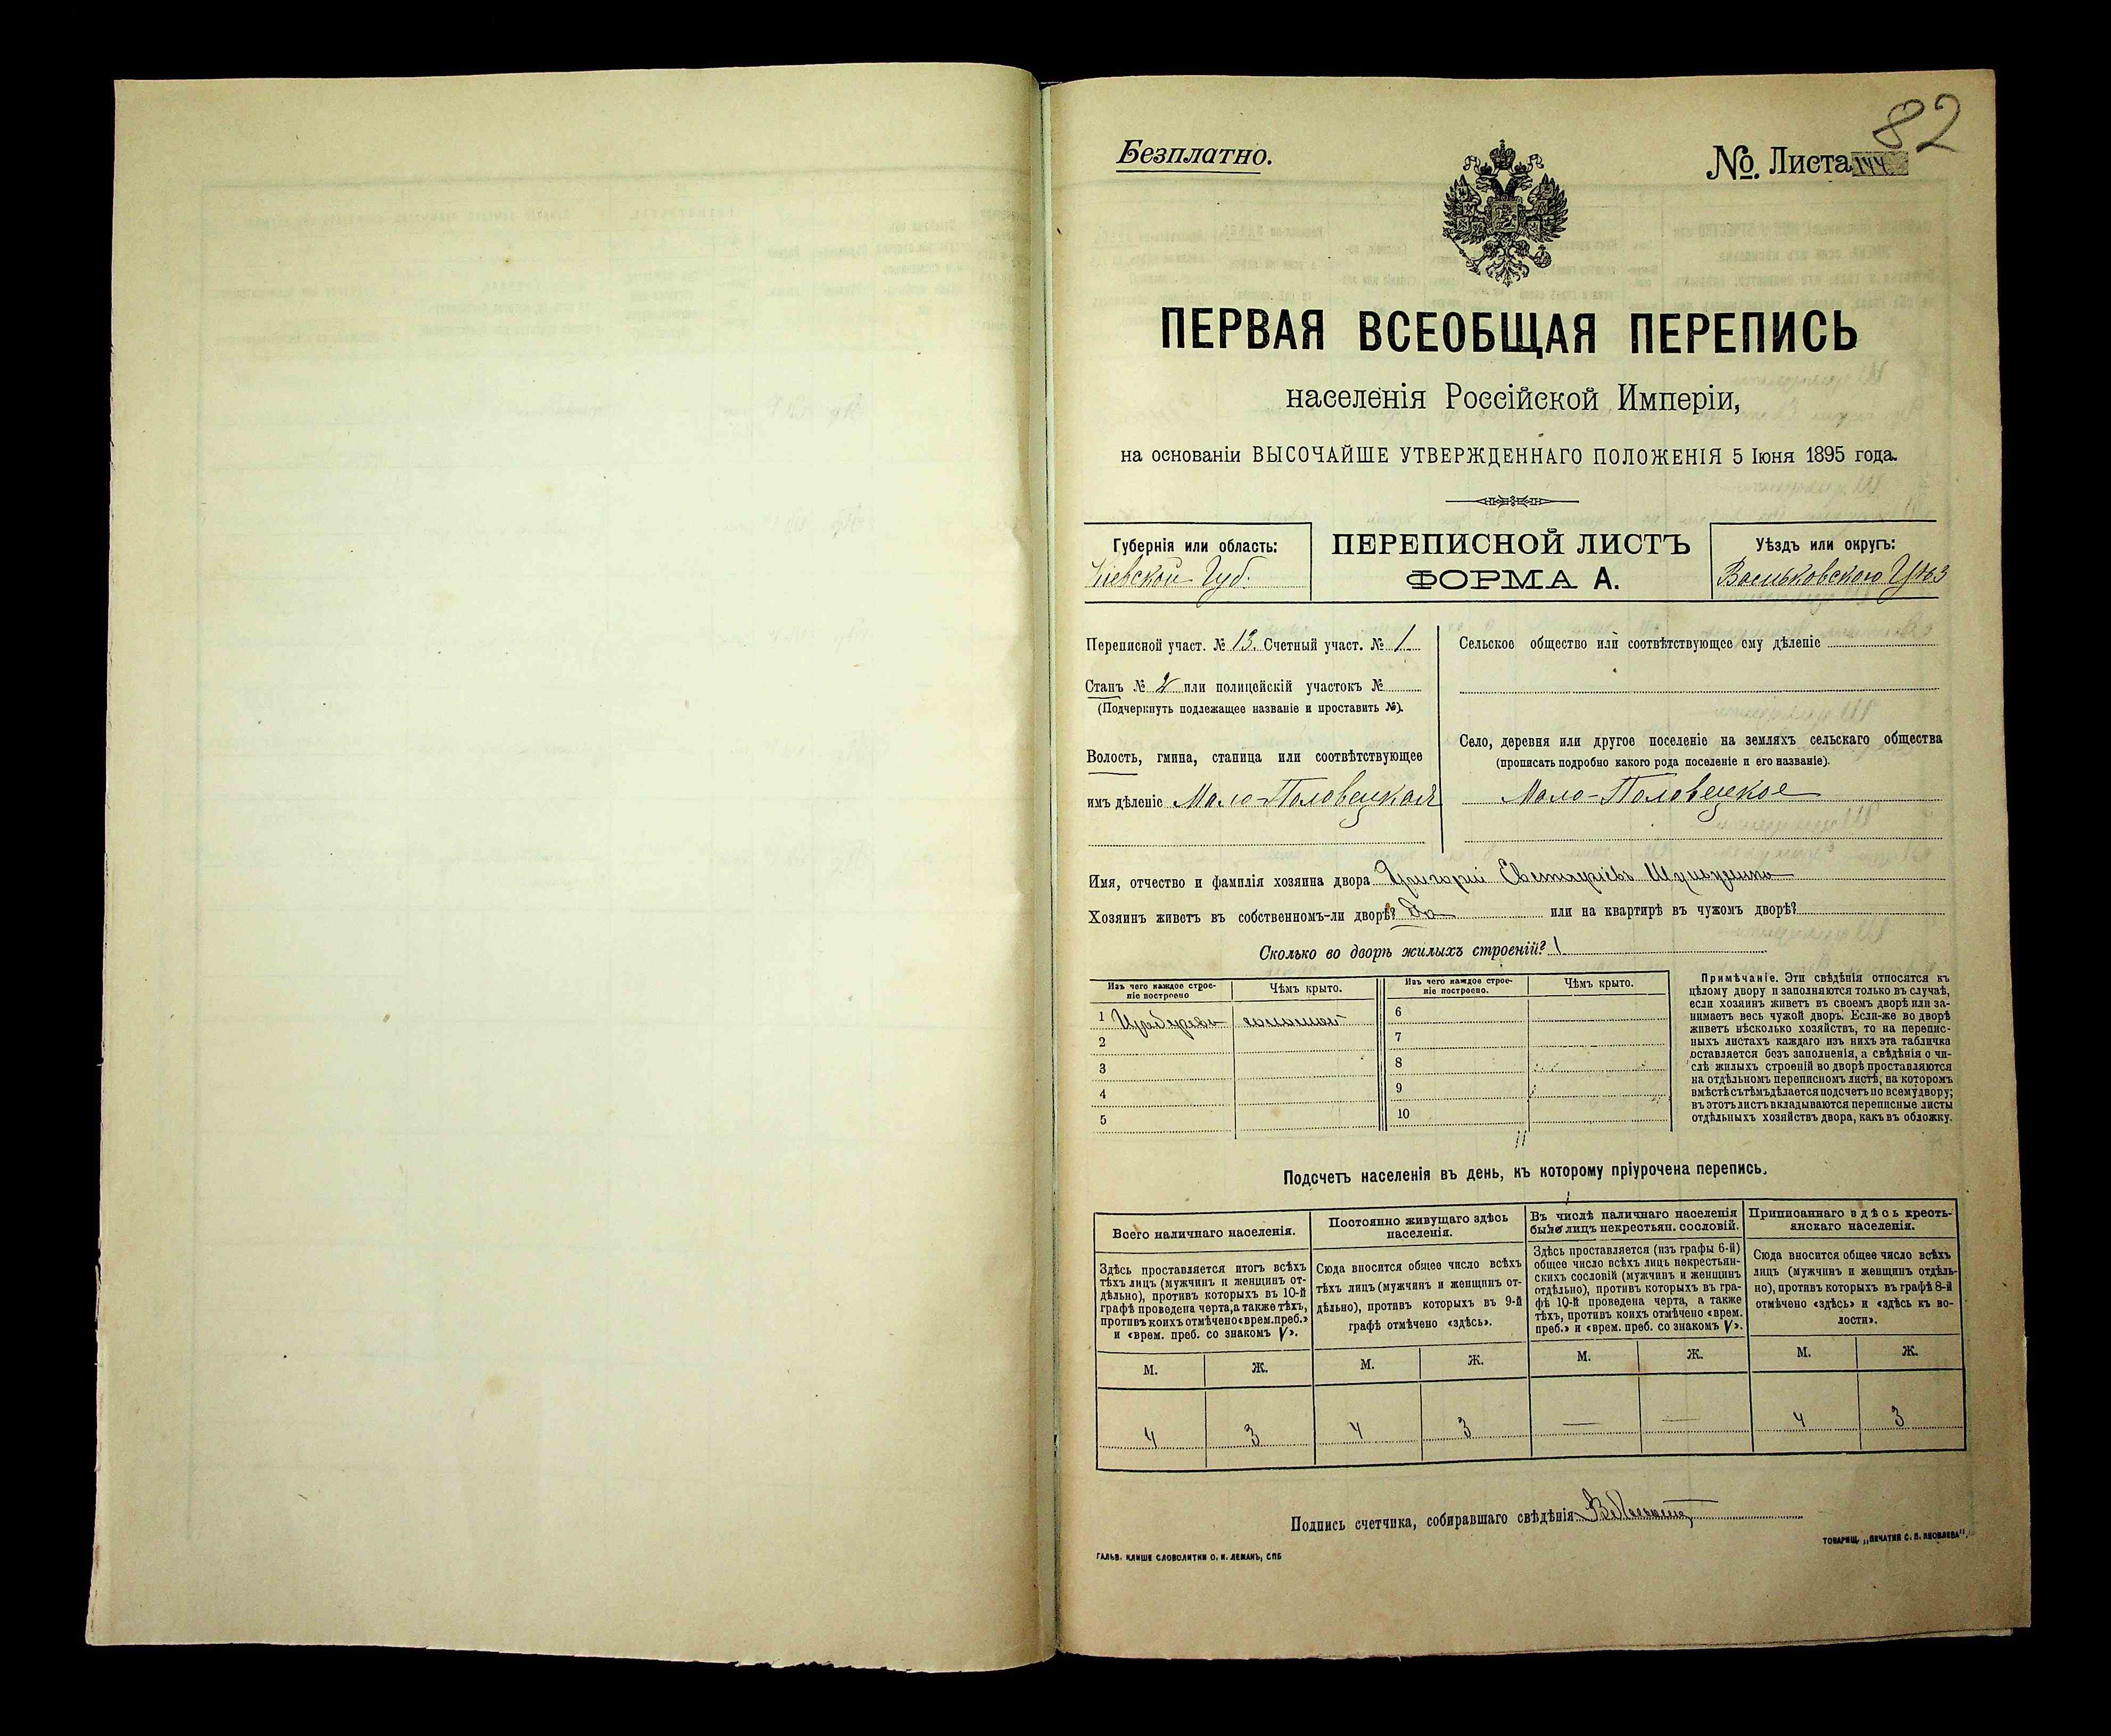 82
Безплатно.
№. Листа 144
ПЕРВАЯ ВСЕОБЩАЯ ПЕРЕПИСЬ
населенія Россійской Имперіи,
на основаніи ВЫСОЧАЙШЕ УТВЕРЖДЕННАГО ПОЛОЖЕНІЯ 5 Іюня 1895 года.
Губернія или область:
Кіевской Губ.
ПЕРЕПИСНОЙ ЛИСТЪ
ФОРМА А.
Уѣздъ или округъ:
Васильковскаго Уѣз
Переписной участ. № 13. Счетный участ. № 1
Станъ № 2 или полицейскій участокъ №
(Подчеркнуть подлежащее названіе и проставить №).
Волость, гмина, станица или соотвѣтствующее
имъ дѣленіе Мало-Половецкая
Сельское общество или соотвѣтствующее ему дѣленіе
Село, деревня или другое поселеніе на земляхъ сельскаго общества
(прописать подробно какого рода поселеніе и его названіе).
Мало-Половецкое
Имя, отчество и фамилія хозяина двора Григорій Евстафіевъ
Хозяинъ живетъ въ собственномъ-ли дворѣ? Да или на квартирѣ въ чужомъ дворѣ?
Сколько во дворѣ жилыхъ строеній? 1
Изъ чего каждое строе-
ніе построено
Чѣмъ крыто.
Изъ чего каждое строе-
ніе построено.
Чѣмъ крыто.
1 соломой
2
3
4
5
6
7
8
9
10
Примѣчаніе. Эти свѣдѣнія относятся къ
цѣлому двору и заполняются только въ случаѣ,
если хозяинъ живетъ въ своемъ дворѣ или за-
нимаетъ весь чужой дворъ. Если-же во дворѣ
живетъ нѣсколько хозяйствъ, то на перепис-
ныхъ листахъ каждаго изъ нихъ эта табличка
оставляется безъ заполненія, а свѣдѣнія о чи-
слѣ жилыхъ строеній во дворѣ проставляются
на отдѣльномъ переписномъ листѣ, на которомъ
вмѣстѣ съ тѣмъ дѣлается подсчетъ по всему двору;
въ этотъ листъ вкладываются переписные листы
отдѣльныхъ хозяйствъ двора, какъ въ обложку.
Подсчетъ населенія въ день, къ которому пріурочена перепись.
Всего наличнаго населенія.
Здѣсь проставляется итогъ всѣхъ
тѣхъ лицъ (мужчинъ и женщинъ от-
дѣльно), противъ которыхъ въ 10-й
графѣ проведена черта, а также тѣхъ,
противъ коихъ отмѣчено «врем. преб.»
и «врем. преб. со знакомъ V».
Постоянно живущаго здѣсь
населенія.
Сюда вносится общее число всѣхъ
тѣхъ лицъ (мужчинъ и женщинъ от-
дѣльно), противъ которыхъ въ 9-й
графѣ отмѣчено «здѣсь».
Въ числѣ наличнаго населенія
было лицъ некрестьян. сословій.
Здѣсь проставляется (изъ графы 6-й)
общее число всѣхъ лицъ некрестьян-
скихъ сословій (мужчинъ и женщинъ
отдѣльно), противъ которыхъ въ гра-
фѣ 10-й проведена черта, а также
тѣхъ, противъ коихъ отмѣчено «врем.
преб.» и «врем. преб. со знакомъ V».
Приписаннаго здѣсь кресть-
янскаго населенія.
Сюда вносится общее число всѣхъ
лицъ (мужчинъ и женщинъ отдѣль-
но), противъ которыхъ въ графѣ 8-й
отмѣчено «здѣсь» и «здѣсь къ во-
лости».
М. Ж. М. Ж. М. Ж. М. Ж.
4 3 4 3 — — 4 3
Подпись счетчика, собиравшаго свѣдѣнія
ГАЛЬВ. КЛИШЕ СЛОВОЛИТНИ О. И. ЛЕМАНЪ, СПБ
ТОВАРИЩ. „ПЕЧАТНЯ С. П. ЯКОВЛЕВА".